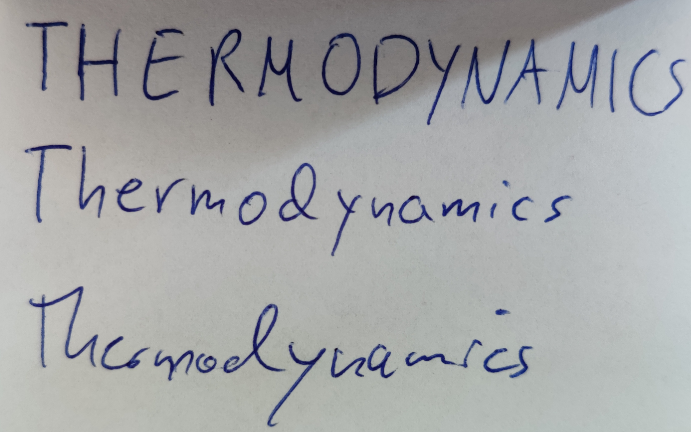 THERMODYNAMICS
Thermodynamics
Thermodynamics